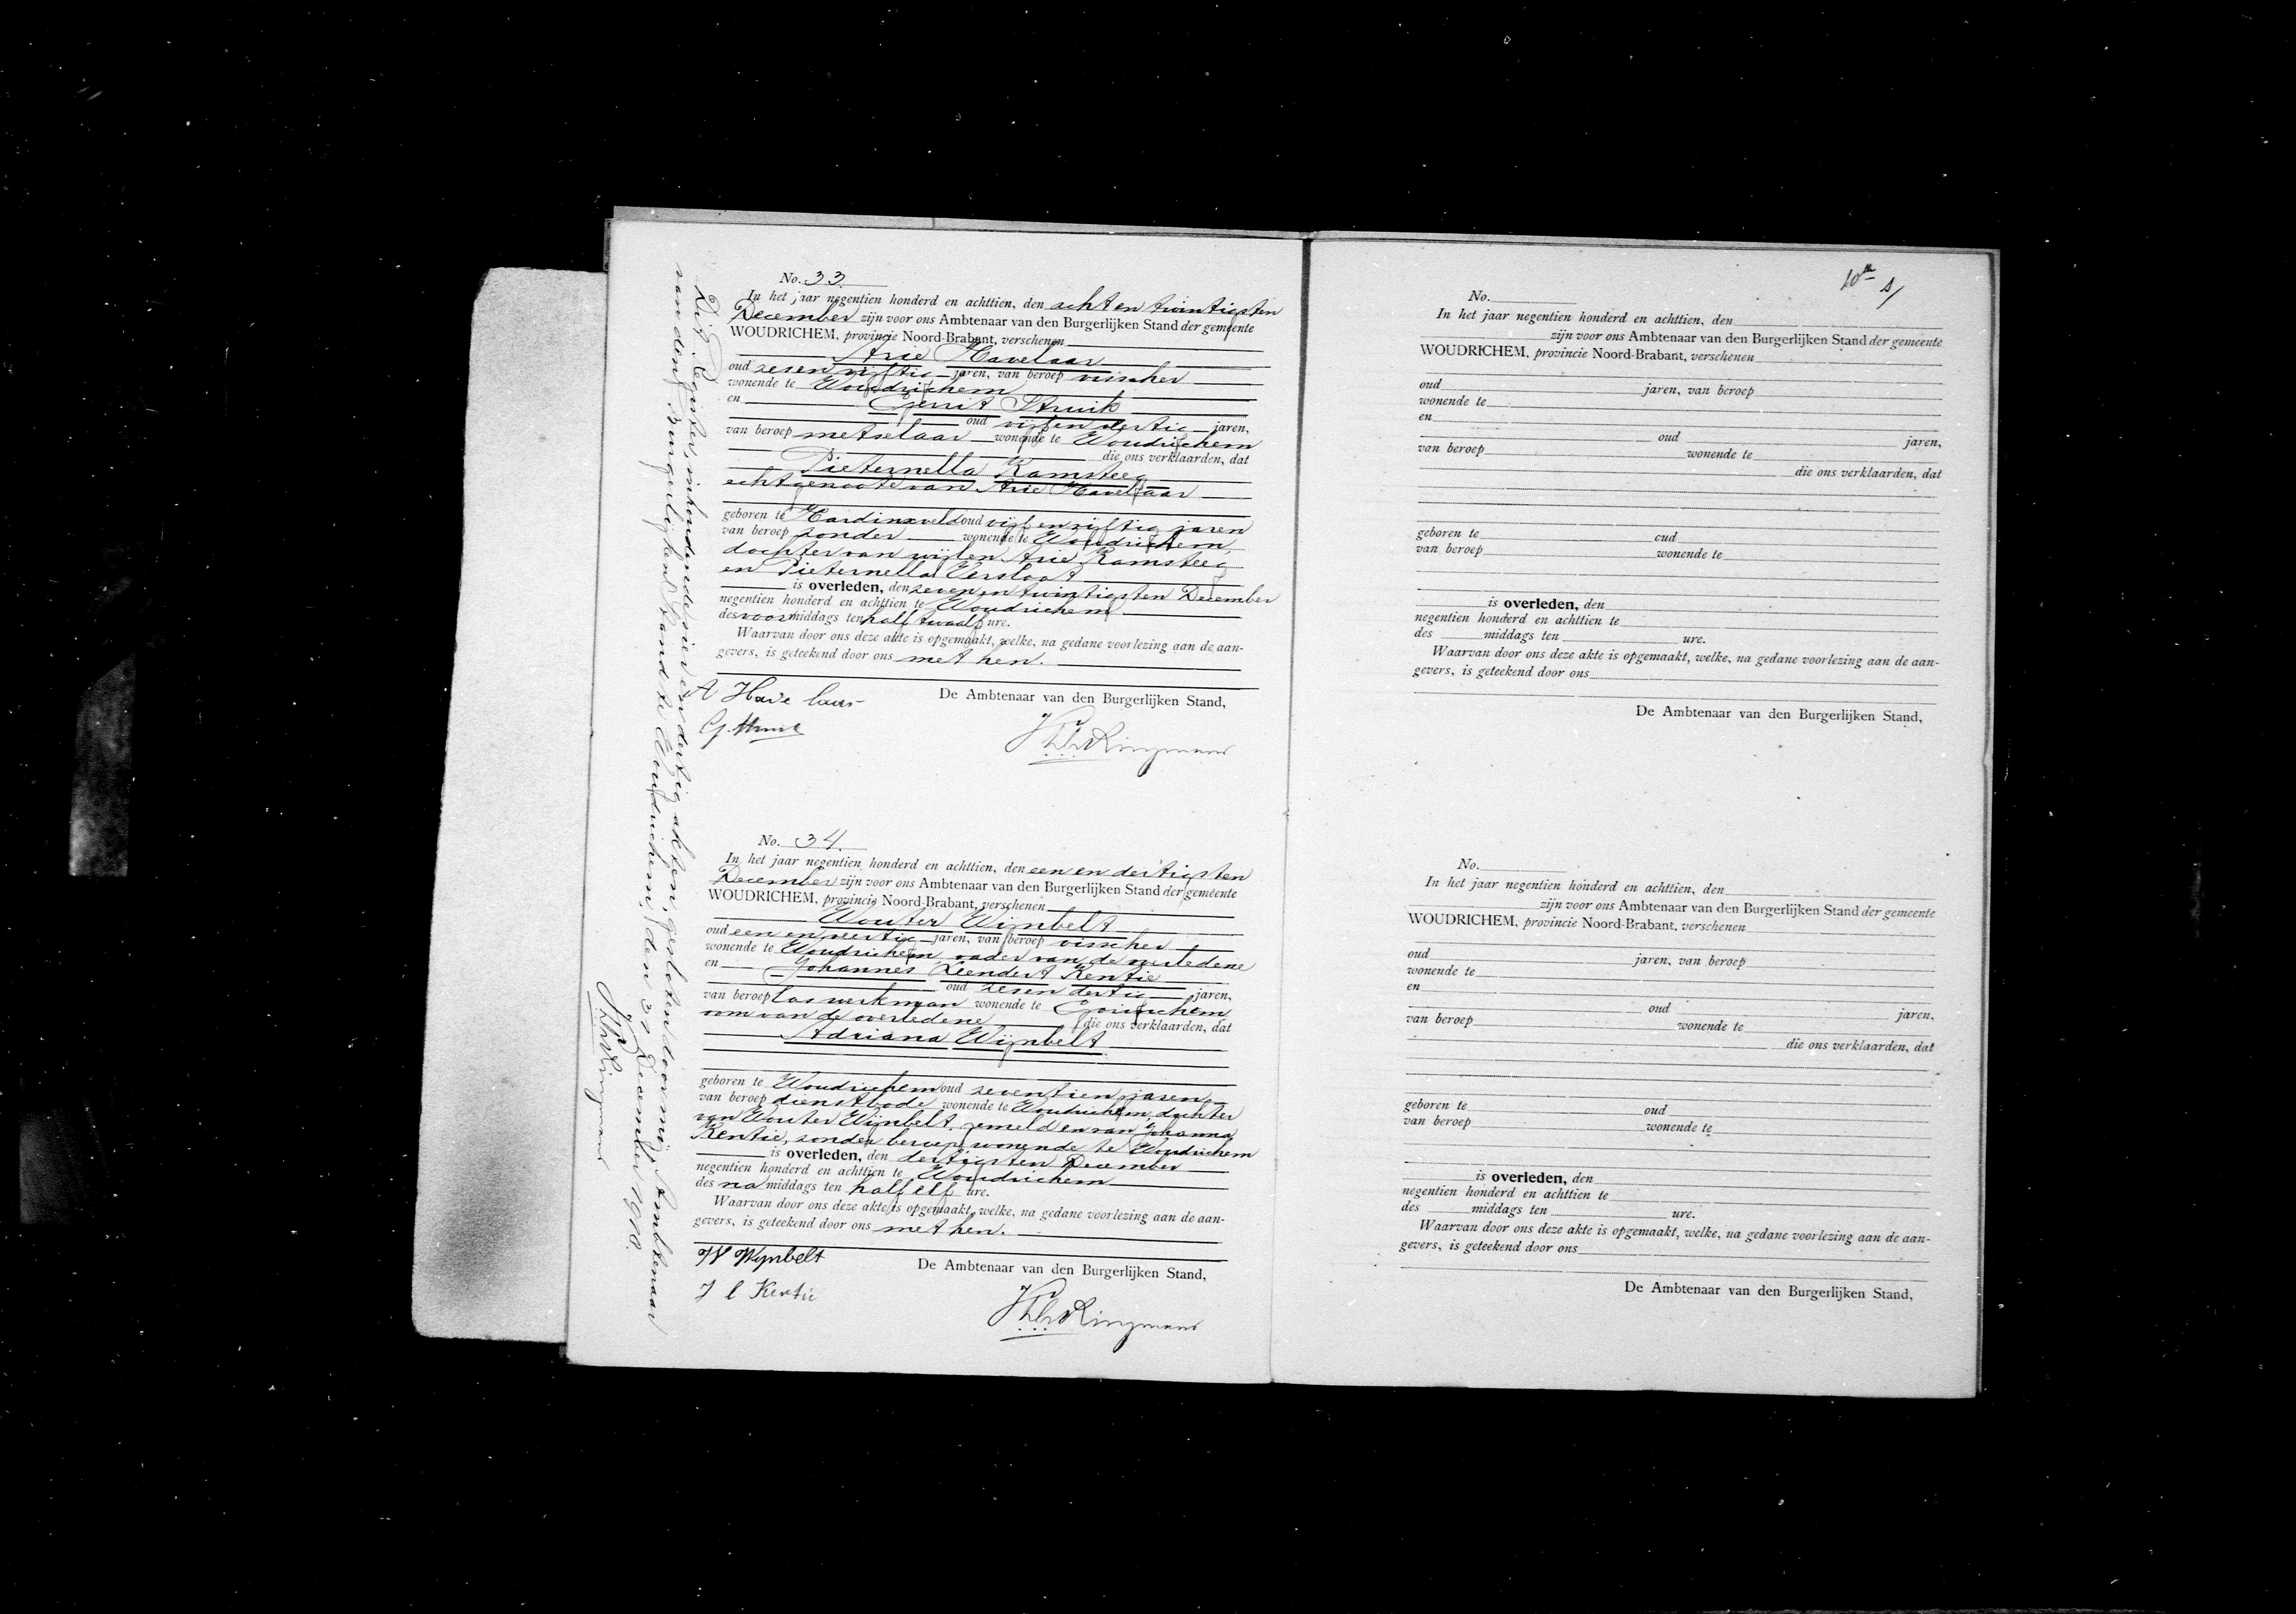 No. 33.
In het jaar negentien honderd en achttien, den acht en twintigsten
December zijn voor ons Ambtenaar van den Burgerlijken Stand der gemeente
WOUDRICHEM, provincie Noord-Brabant, verschenen
Arie Havelaar
oud zes en vijftig jaren, van beroep visscher
wonende te Woudrichem
en Gerrit Struik
oud vijf en dertig jaren,
van beroep metselaar wonende te Woudrichem
die ons verklaarden, dat
Pieternella Ramsteeg
echtgenoote van Arie Havelaar
geboren te Hardinxveld oud vijf en vijftig jaren
van beroep zonder wonende te Woudrichem,
dochter van wijlen Arie Ramsteeg
en Pieternella Versloot
is overleden, den zeven en twintigsten December
negentien honderd en achttien te Woudrichem
des voormiddags ten half twaalf ure.
Waarvan door ons deze akte is opgemaakt, welke, na gedane voorlezing aan de aan-
gevers, is geteekend door ons met hen.
De Ambtenaar van den Burgerlijken Stand,
A Havelaar
G. Struik
No. 34.
In het jaar negentien honderd en achttien, den een en dertigsten
December zijn voor ons Ambtenaar van den Burgerlijken Stand der gemeente
WOUDRICHEM, provincie Noord-Brabant, verschenen
Wouter Wijnbelt
oud een en veertig jaren, van beroep visscher
wonende te Woudrichem, vader van de overledene
en Johannes Leendert Kentie
oud zes en dertig jaren,
van beroep los werkman wonende te Gorinchem
oom van de overledene die ons verklaarden, dat
Adriana Wijnbelt
geboren te Woudrichem oud zeventien jaren,
van beroep dienstbode wonende te Woudrichem, dochter
van Wouter Wijnbelt, gemeld en van Johanna
Kentie, zonder beroep, wonende te Woudrichem
is overleden, den dertigsten December
negentien honderd en achttien te Woudrichem
des namiddags ten half elf ure.
Waarvan door ons deze akte is opgemaakt, welke, na gedane voorlezing aan de aan-
gevers, is geteekend door ons met hen.
De Ambtenaar van den Burgerlijken Stand,
W Wijnbelt
J l Kentie
Dit Register, inhoudende vier en dertig akten, gesloten door mij Ambtenaar
van den Burgerlijken Stand te Woudrichem, den 31 December 1918.
10de
No.
In het jaar negentien honderd en achttien, den
zijn voor ons Ambtenaar van den Burgerlijken Stand der gemeente
WOUDRICHEM, provincie Noord-Brabant, verschenen
oud jaren, van beroep
wonende te
en
oud jaren,
van beroep wonende te
die ons verklaarden, dat
geboren te cud
van beroep wonende te
is overleden, den
negentien honderd en achttien te
des middags ten ure.
Waarvan door ons deze akte is opgemaakt, welke, na gedane voorlezing aan de aan-
gevers, is geteekend door ons
De Ambtenaar van den Burgerlijken Stand,
No.
In het jaar negentien honderd en achttien, den
zijn voor ons Ambtenaar van den Burgerlijken Stand der gemeente
WOUDRICHEM, provincie Noord-Brabant, verschenen
oud jaren, van beroep
wonende te
en
oud jaren,
van beroep wonende te
die ons verklaarden, dat
geboren te oud
van beroep wonende te
is overleden, den
negentien honderd en achttien te
des middags ten ure.
Waarvan door ons deze akte is opgemaakt, welke, na gedane voorlezing aan de aan-
gevers, is geteekend door ons
De Ambtenaar van den Burgerlijken Stand,